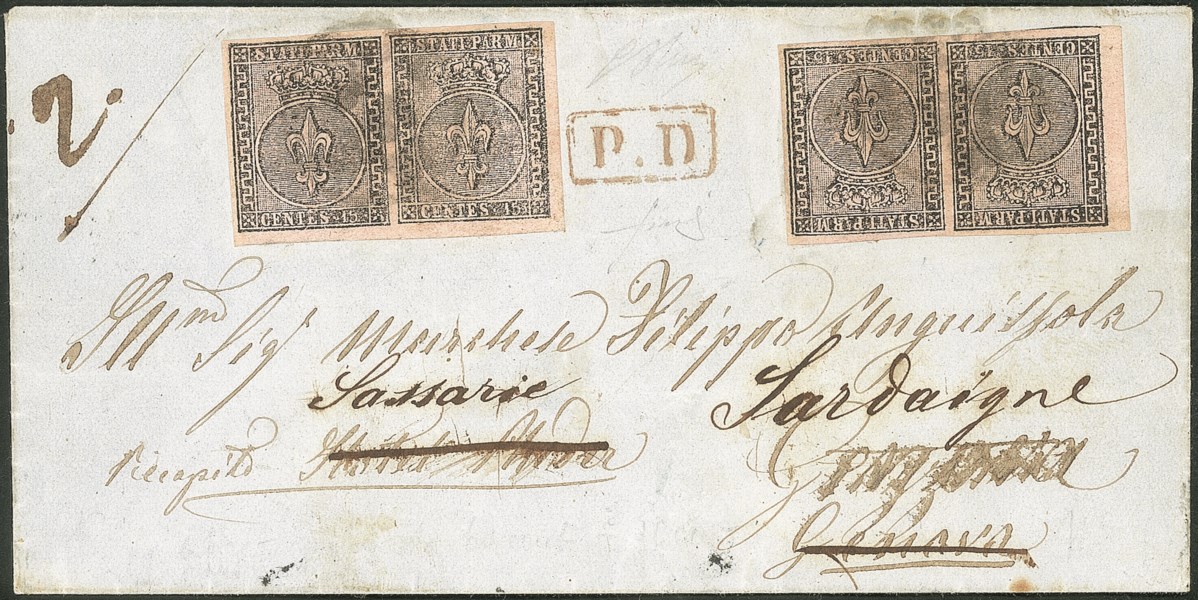 2.
STATI PARM
CENTES. 15
STATI PARM
CENTES. 15
P.D
STATI PARM
CENTES. 15
STATI PARM
CENTES. 15
Sig.r Marchese Filippo Anguissola
Sassarie Sardaigne
Recapito
Genova